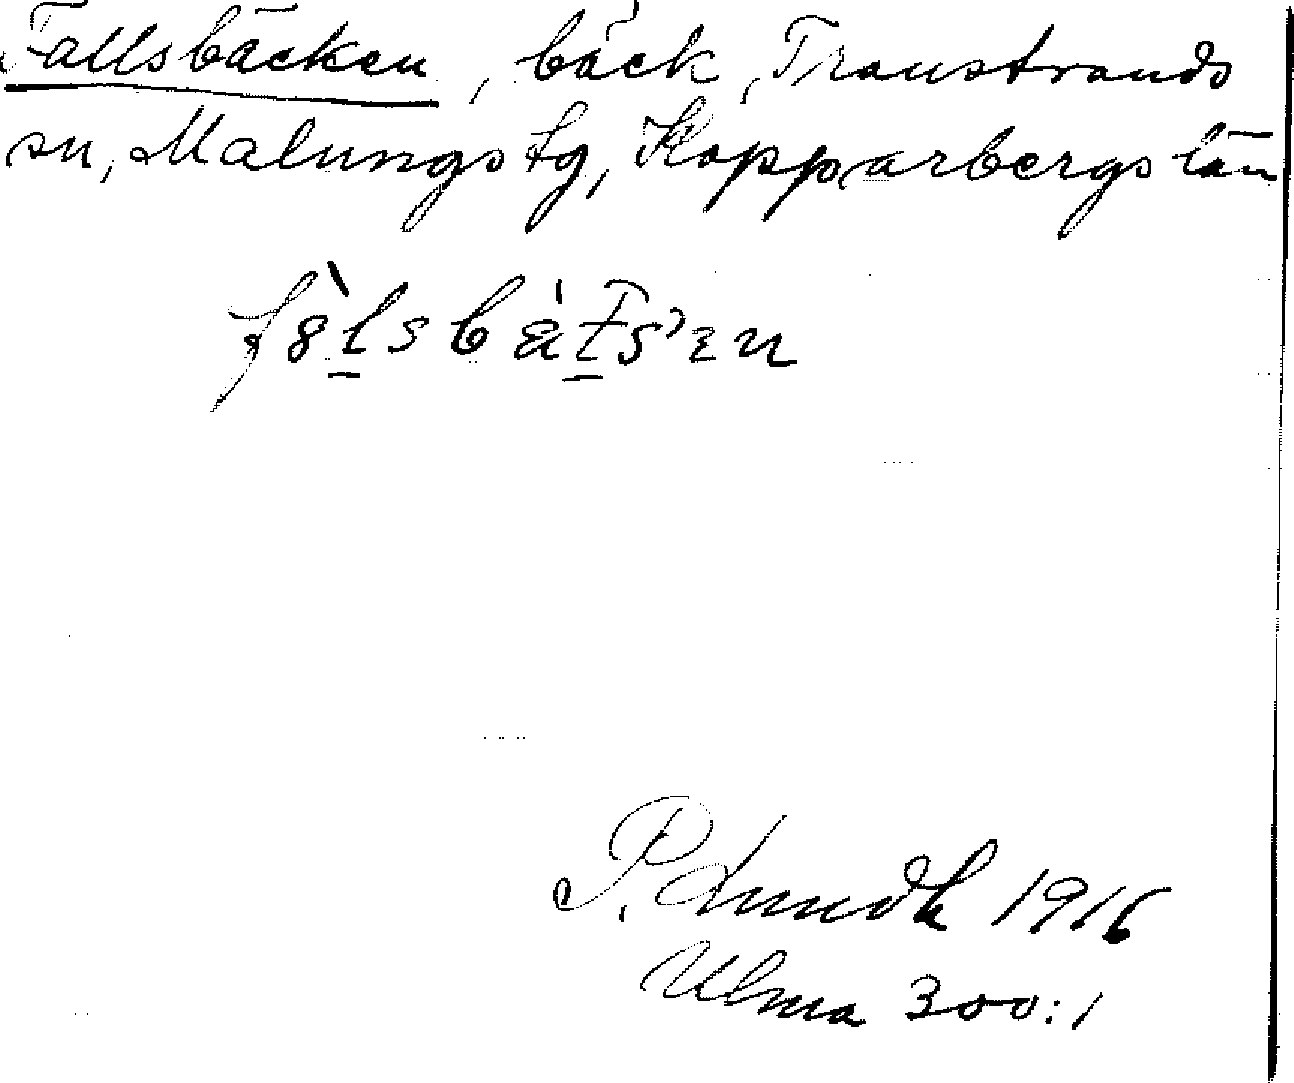 Fallsbäcken, bäck, Transtrands
sn, Malungs tg, Kopparbergs län
P. Lundh 1916
Ulma 300:1